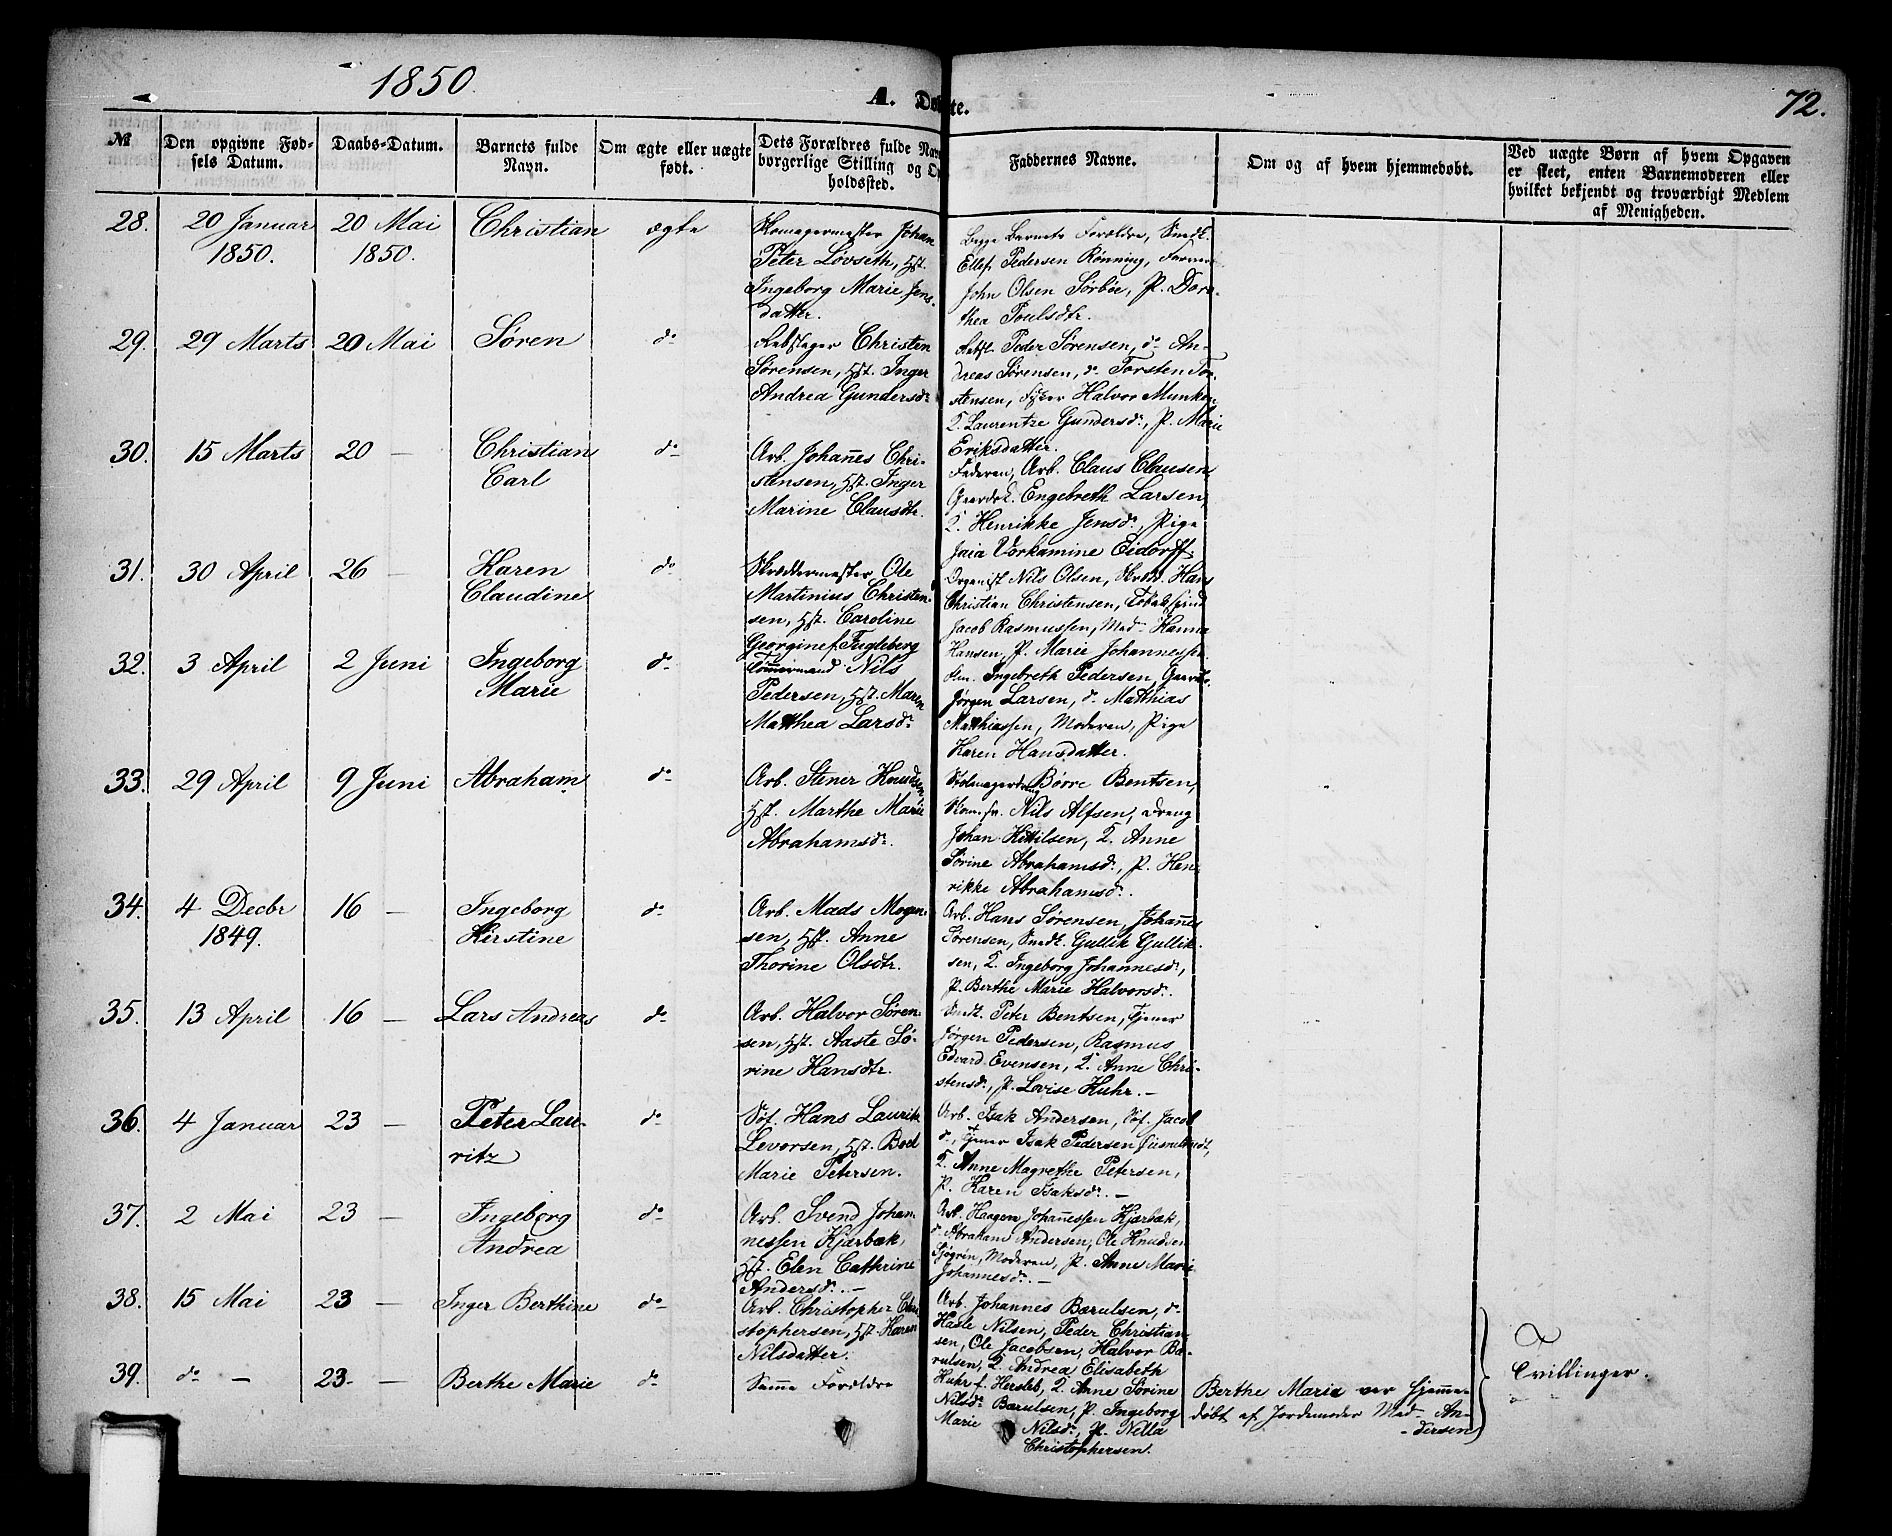 1850
A. Døbte.
72.
№
Den opgivne Fødsels Datum.
Daabs-Datum.
Barnets fulde Navn.
Om ægte eller uægte født.
Dets Forældres fulde Navn
borgerlige Stilling og O
holdssted.
Faddernes Navne.
Om og af hvem hjemmedøbt.
Ved uægte Børn af hvem Opgaven
er skeet, enten Barnemoderen eller
hvilket bekjendt og troværdigt Medlem
af Menigheden.
28. 20 Januar 1850. 20 Mai 1850. Christian ægte
Skomagermester Johan
Peter Lövseth, Hst.
Ingeborg Marie Jens-
datter.
Begge Barnets Forældre, Smedk.
Ellef Pedersen Rönning, Farver
John Olsen Sörböe, P. Doro-
thea Poulsdtr.
29. 29 Marts 20 Mai Søren do
Rebslager Christen
Sörensen, Hst. Inger
Andrea Gundersdr
Rebsl. Peder Sörensen, do An-
dreas Sörensen, do Torsten Tor-
stensen, Halvor Munken
Laurentze Gundersdr, P. Marie
Eriksdatter.
30. 15 Marts 20 — Christian Carl do
Arb. Johañes Chri-
stensen, Hst. Inger
Marine Clausdtr.
Faderen, Arb. Claus Clausen
Gaardsk. Engebreth Larsen,
Henrikke Jensdr, Pige
Jaia Vorkamine Eidorff.
31. 30 April 26 — Karen Claudine do
Skræddermester Ole
Martinius Christen-
sen, Hst. Caroline
Georgine f. Fugleberg
Organist Nils Olsen, Skræd. Hans
Christian Christensen, Tobaksspind
Jacob Rasmussen, Mad. Hanna
Hansen, P. Marie Johannesse
32. 3 April 2 Juni Ingeborg Marie do
Tömmermand Nils
Pedersen, Hst. Maren
Matthea Larsdr
Ingebreth Pedersen, Gaardk.
Jørgen Larsen, do Matthias
Matthiassen, Moderen, Pige
Karen Hansdatter.
33. 29 April 9 Juni Abraham do
Arb. Stener Knudsen,
Hst. Marthe Marie
Abrahamsdr.
Stolmagerdreng Börre Bentsen,
Skom. sv. Nils Alfsen, Dreng
Johan Kittilsen, Anne
Sörine Abrahamsdr, P. Hen-
rikke Abrahamsdr.
34. 4 Decbr 1849. 16 — Ingeborg Kirstine do
Arb. Mads Mogen-
sen, Hst. Anne
Thorine Olsdtr.
Arb. Hans Sörensen, Johañes
Sörensen, Smedk. Gullik Gullik-
sen, Ingeborg Johannesdr,
P. Berthe Marie Halvorsdr.
35. 13 April 16 — Lars Andreas do
Arb. Halvor Sören-
sen, Hst. Aaste Sö-
rine Hansdtr.
Smedk. Peter Bentsen, Tjener
Jörgen Pedersen, Rasmus
Edvard Evensen, Anne Chri-
stensdr, P. Lovise Huhr. —
36. 4 Januar 23 — Peter Lau-
ritz do
Söf. Hans Laurik
Levorsen, Hst. Boel
Marie Petersen.
Arb. Isak Andersen, Söf. Jacob
do, Tjener Isak Pedersen
Anne Magrethe Petersen,
P. Karen Isaksdr. —
37. 2 Mai 23 — Ingeborg Andrea do
Arb. Svend Johan-
nessen Kjærbæk,
Hst. Elen Cathrine
Andersdr. —
Arb. Haagen Johañessen Kjærbæk,
do Abraham Andersen, Ole Knudsen
Sjögrin, Moderen, P. Anne Marie
Johannesdr. —
38. 15 Mai 23 — Inger Berthine do
Arb. Christopher Chri-
stophersen, Hst Karen
Nilsdatter.
Arb. Johannes Bærulsen, do
Hasle Nilsen, Peder Christian-
sen, Ole Jacobsen, Halvor Bæ-
rulsen, Andrea Elisabeth
Huhr f. Hersleb, Anne Sörine
Nilsdr Bærulsen, P. Ingeborg
Marie Nilsdr, P. Nella
Christophersen.
39. do — 23. — Berthe Marie do
Samme Forældre
Berthe Marie var hjemme-
døbt af Jordemoder Mad. An-
dersen
Tvillinger.